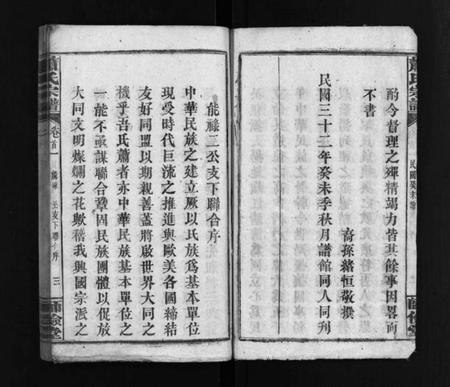 蕭氏宗譜
酌今督理之殫精竭力皆其餘事因畧而
不書
裔孫緒恒敬撰
民國三十二年癸未季秋月譜館同人同刋
民國癸未
師儉堂
能祿三公支下聯合序
中華民族之建立厥以民族爲基本單位
現受時代巨流之推進與歐美各國締結
友好同盟以期親善蓋將啟世界大同之
機乎吾氏蕭者亦中華民族基本單位之
一能不亟謀聯合鞏固民族團體以促放
大同文明燦爛之花歟稽我興國宗派之
蕭氏宗譜
卷首一
公支下聯合序
三
師儉堂